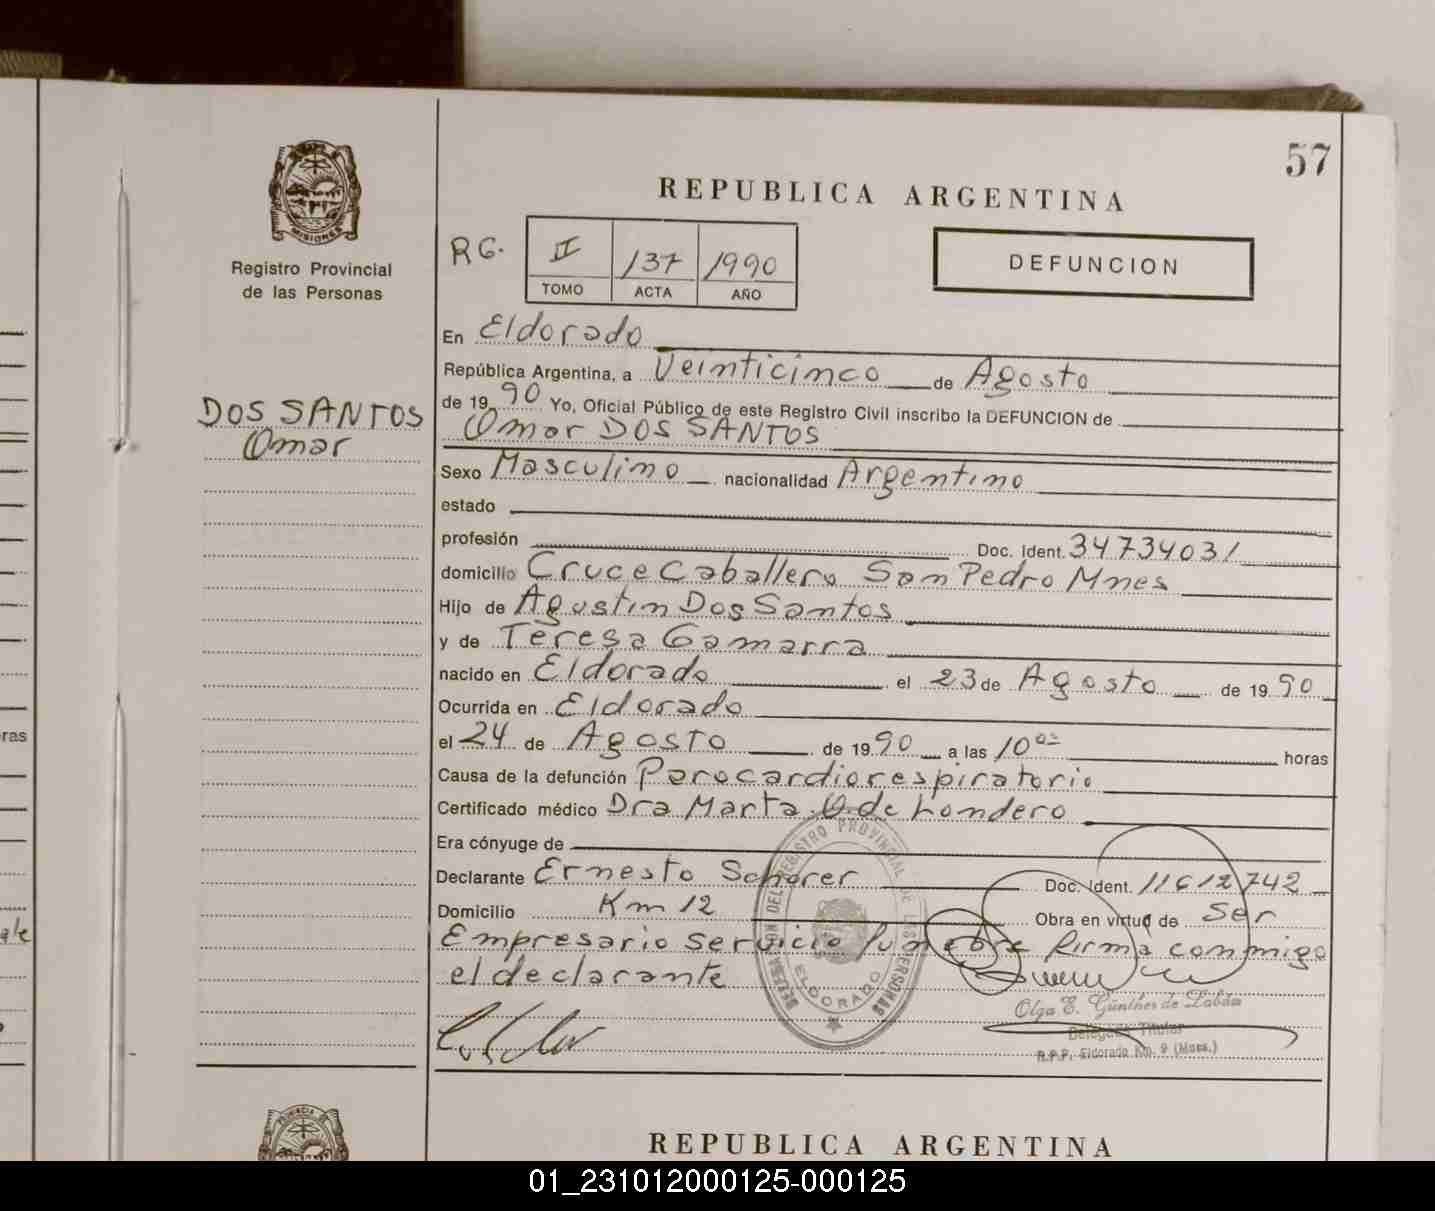 57
REPUBLICA ARGENTINA
MISIONES
Registro Provincial
de las Personas
RG. II 137 1990
TOMO ACTA AÑO
DEFUNCION
DOS SANTOS
Omar
En Eldorado
República Argentina, a Veinticinco de Agosto
de 19 90 Yo, Oficial Público de este Registro Civil inscribo la DEFUNCION de
Omar DOS SANTOS
Sexo Masculino nacionalidad Argentino
estado
profesión Doc. Ident. 34734031
domicilio Cruce Caballero San Pedro Mnes
Hijo de Agustin Dos Santos
y de Teresa Gamarra
nacido en Eldorado el 23 de Agosto de 19 90
Ocurrida en Eldorado
el 24 de Agosto de 19 90 a las 10 horas
Causa de la defunción Parocardiorespiratorio
Certificado médico Dra Marta O. de Londero
Era cónyuge de
Declarante Ernesto Schorer Doc. Ident. 11612742
Domicilio Km 12 Obra en virtud de Ser
Empresario servicio funebre firma conmigo
el declarante
REGISTRO PROVINCIAL DE LAS PERSONAS
ELDORADO
Olga E. Günther de
Delegada Titular
R.P.P. Eldorado Km. 9 (Mnes.)
PROVINCIA DE
REPUBLICA ARGENTINA
01_231012000125-000125